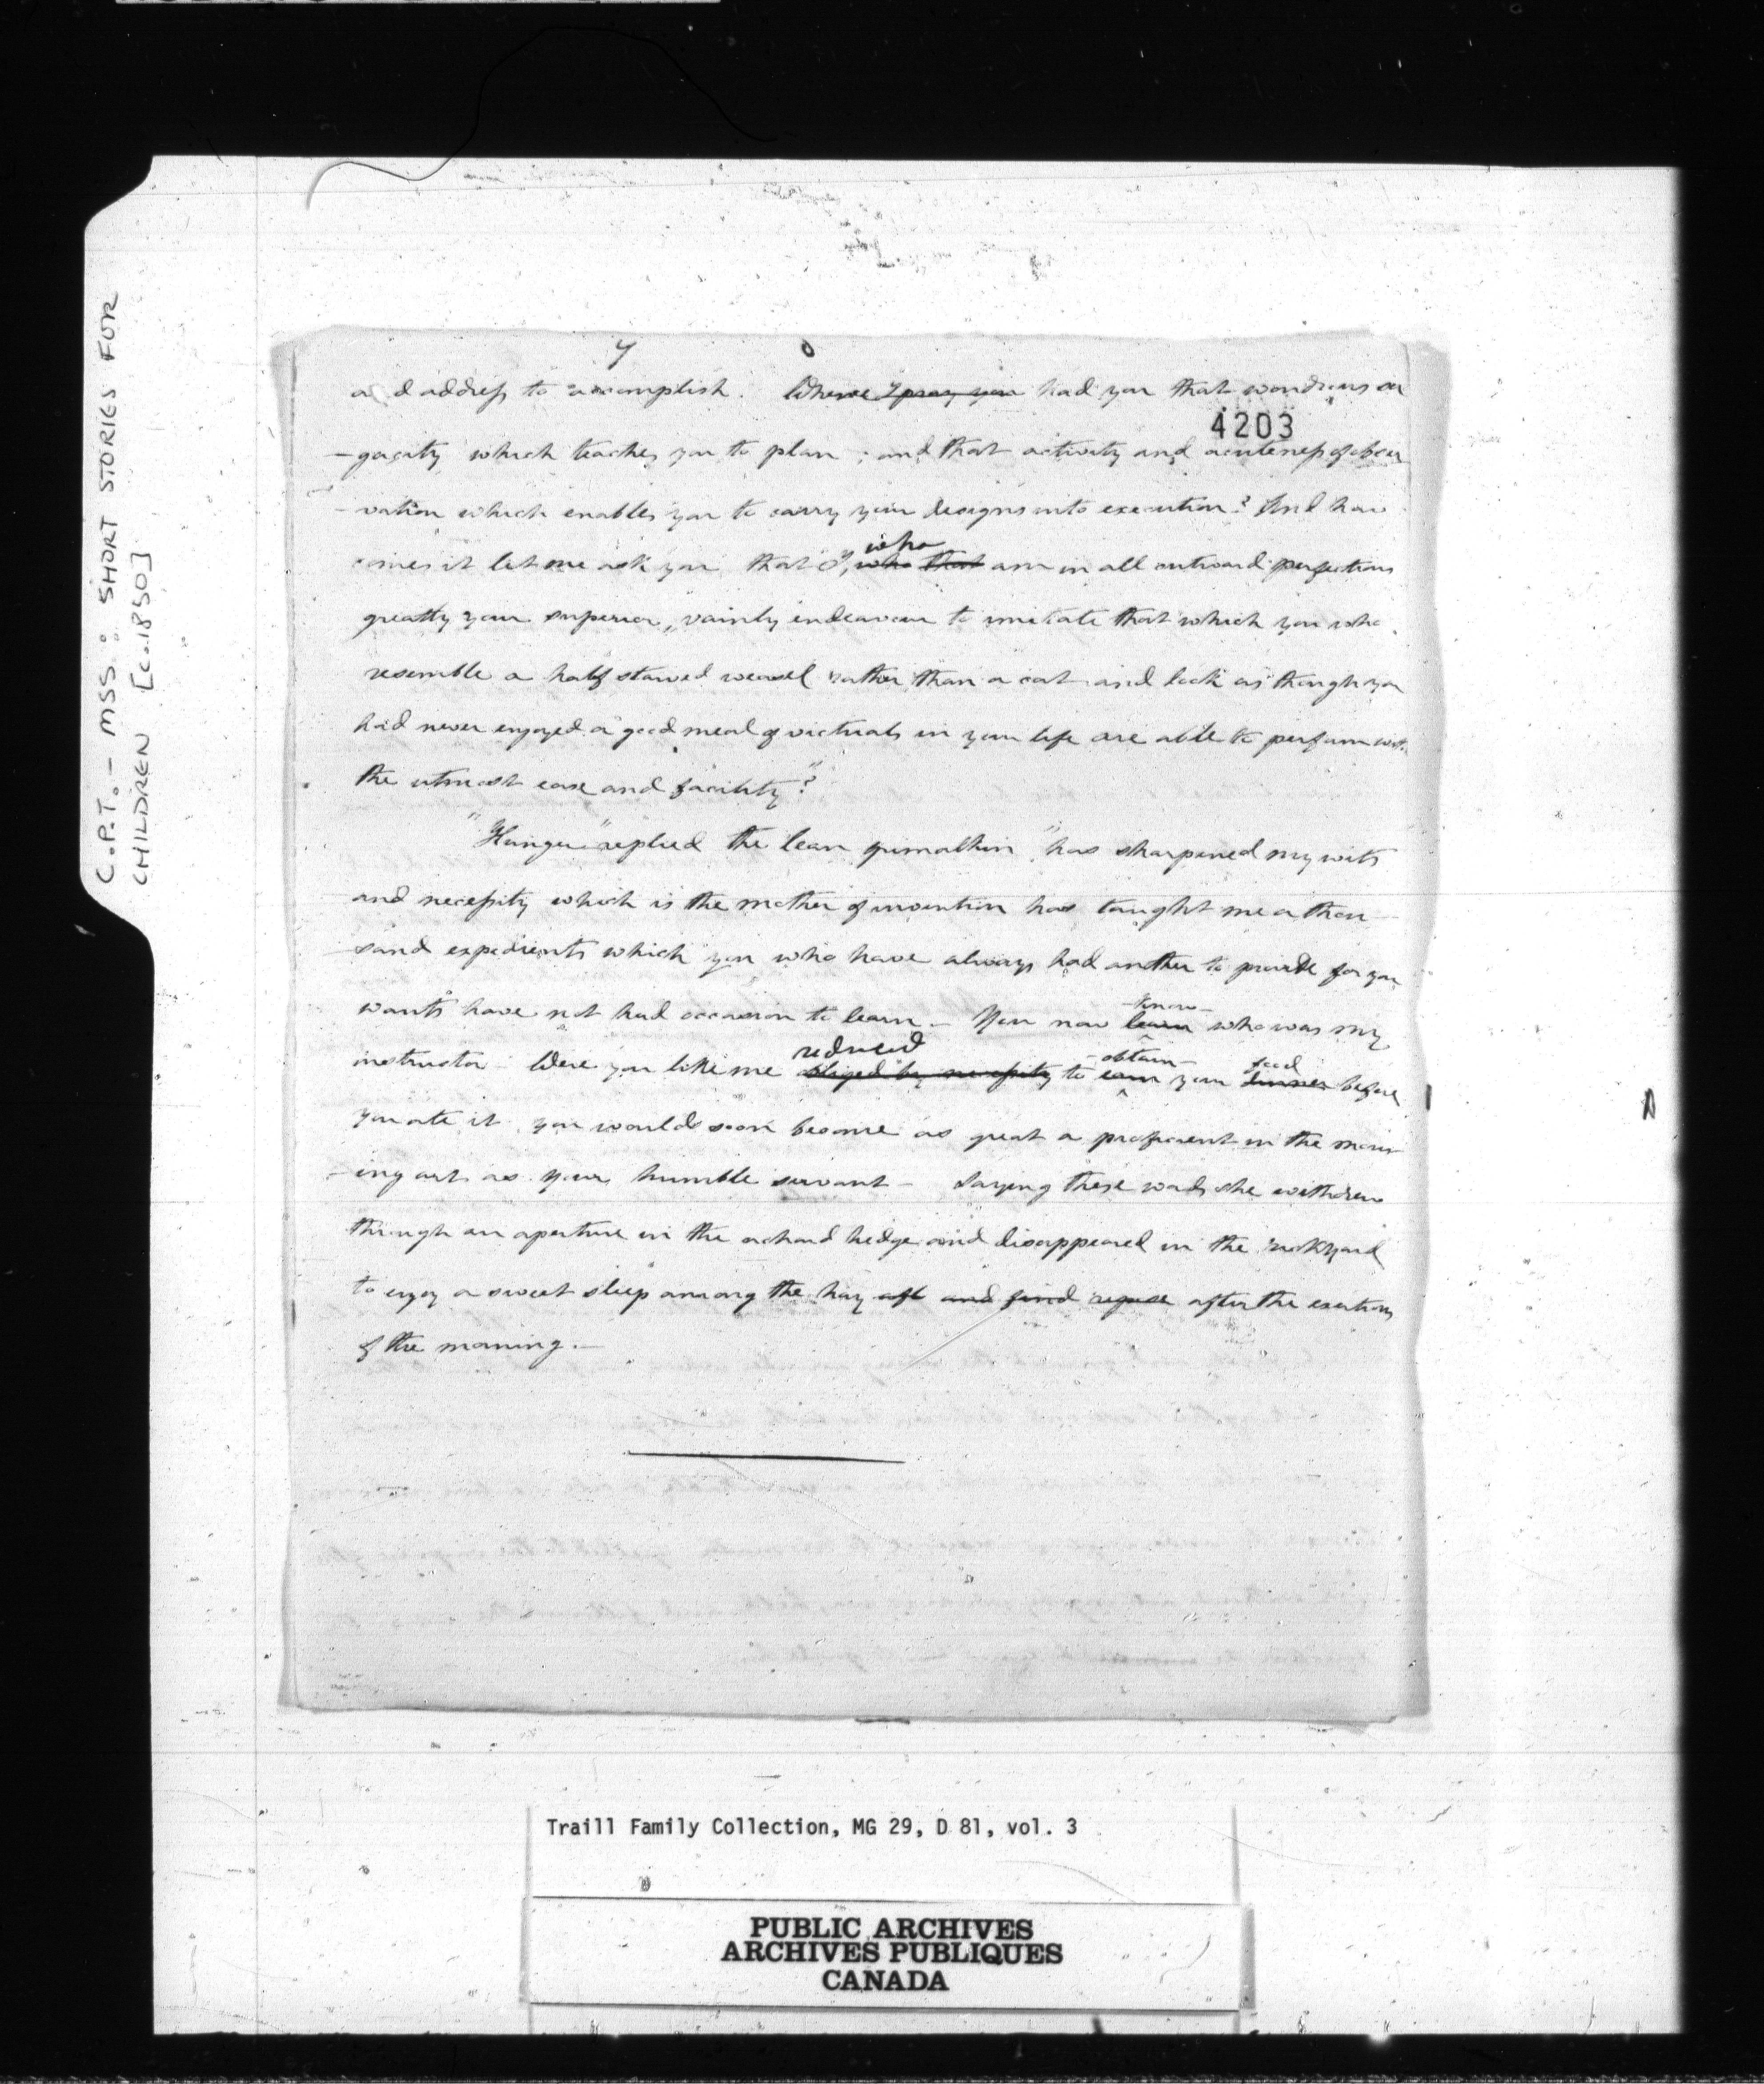 C.P.T. - MSS: SHORT STORIES FOR
CHILDREN [c.1850]
7
and address to accomplish. Where I pray you had you that wondrous sa
4203
-gacity which teaches you to plan; and that activity and acuteness of obser
-vation which enables you to carry your designs into execution? And how
comes it let me ask you that I, who
who that am in all outward perfections
greatly your superior, vainly endeavour to imitate that which you who
resemble a half starved weasel rather than a cat and look as though you
had never enjoyed a good meal of victuals in your life are able to perform with
the utmost ease and facility?"
"Hunger" replied the lean grimalkin "has sharpened my wits
and necessity which is the mother of invention has taught me a thou
-sand expedients which you who have always had another to provide for your
wants have not had occasion to learn - You now learn know who was my
instructor - Were you like me obliged by necessity reduced to earn obtain your dinner food before
you ate it you would soon become as great a proficient in the mous
-ing art as your humble servant - Saying these words she withdrew
through an aperture in the orchard hedge and disappeared in the rickyard
to enjoy a sweet sleep among the hay aft and find repose after the exertions
of the morning. -
Traill Family Collection, MG 29, D 81, vol. 3
PUBLIC ARCHIVES
ARCHIVES PUBLIQUES
CANADA